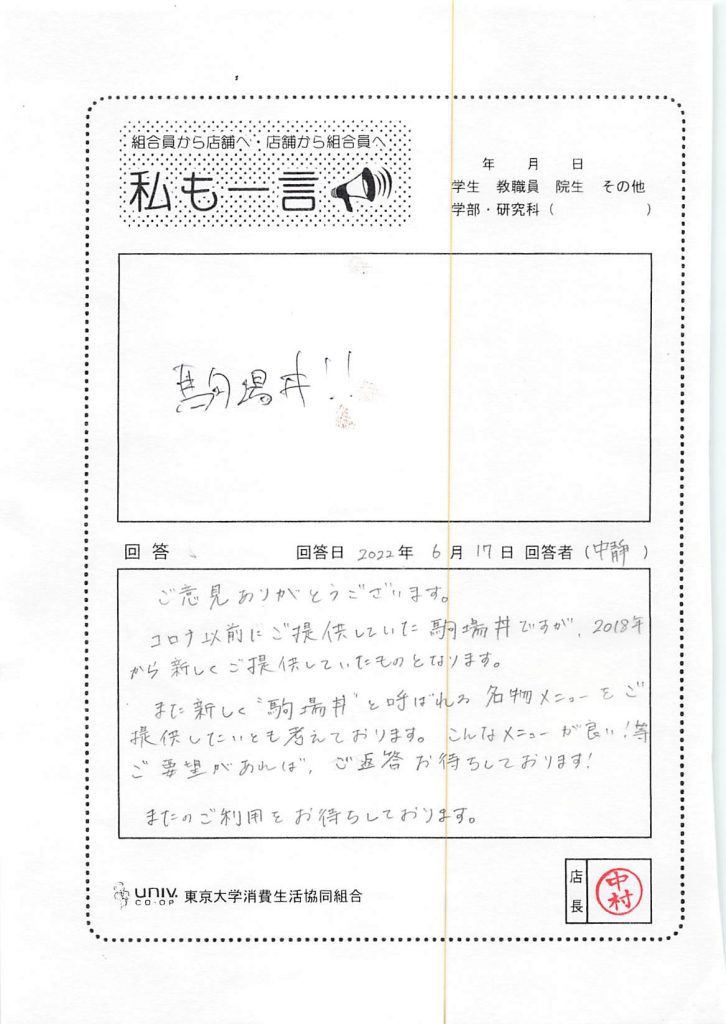 組合員から店舗へ・店舗から組合員へ
私も一言
年 月 日
学生 教職員 院生 その他
学部・研究科( )
駒場丼!!
回答 回答日 2022年 6月 17日 回答者(中静)
ご意見ありがとうございます。
コロナ以前にご提供していた駒場丼ですが、2018年
から新しくご提供していたものとなります。
また新しく"駒場丼"と呼ばれる名物メニューをご
提供したいとも考えております。こんなメニューが良い!等
ご要望があれば、ご返答お待ちしております!
またのご利用をお待ちしております。
UNIV.
CO-OP
東京大学消費生活協同組合
店長
中村